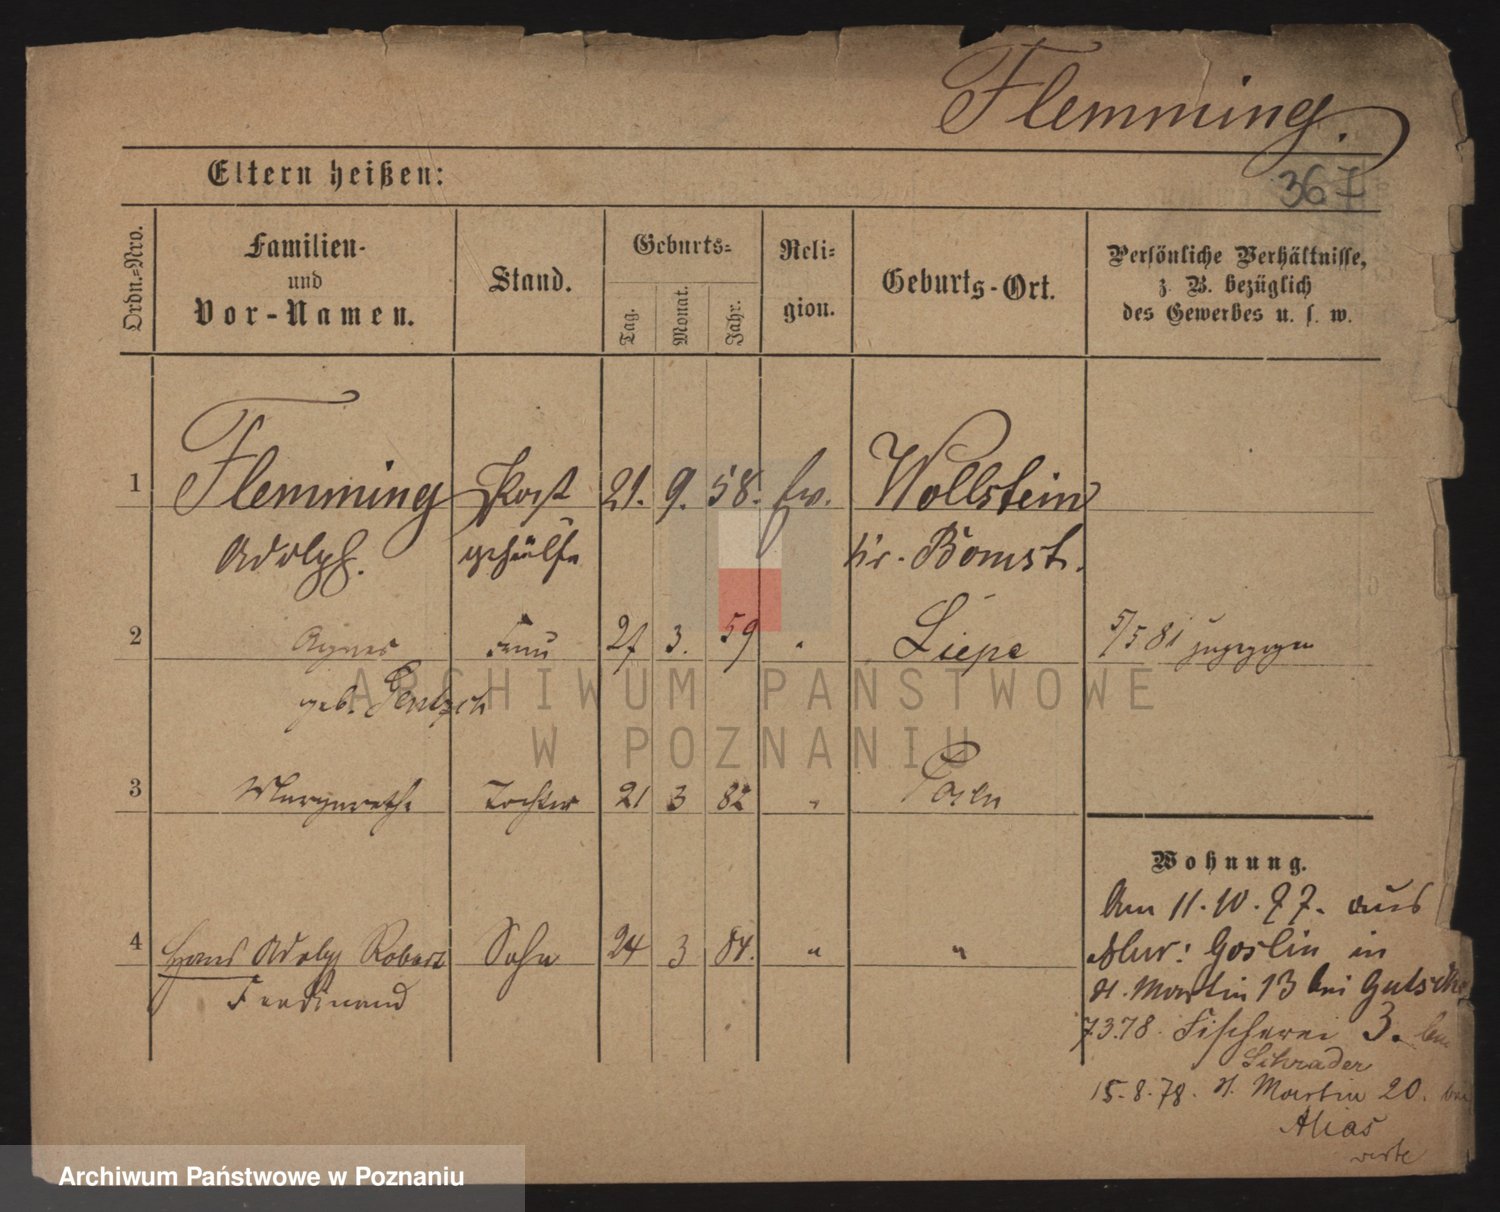 Flemming.
Eltern heißen:
367
Ordn.=Nro.
Familien-
und
Vor-Namen.
Stand.
Geburts=
Tag.
Monat.
Jahr.
Reli=
gion.
Geburts-Ort.
Persönliche Verhältnisse,
z. B. bezüglich
des Gewerbes u. s. w.
1 Flemming Post 21. 9. 58. ev. Wollstein
Adolph. gehülfe Kr. Bomst.
2 Agnes Frau 27 3. 59 " Liepe 5/5 81 zugezogen
geb. Gentzsch
3 Margarethe Tochter 21 3 82 " Posen
Wohnung.
Am 11.10.77. aus
Mur: Goslin in
St. Martin 13 bei Gutsche
4 Hans Adolp Robert Sohn 24 3 84. " "
Ferdinand
7.3.78. Fischerei 3. bei
Schrader
15.8.78. St. Martin 20. bei
Alias
ARCHIWUM PAŃSTWOWE
W POZNANIU
Archiwum Państwowe w Poznaniu